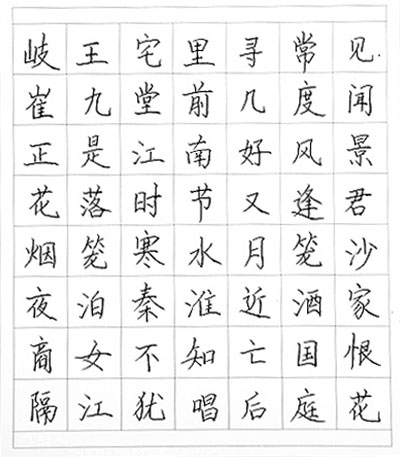 岐王宅里寻常见
崔九堂前几度闻
正是江南好风景
花落时节又逢君
烟笼寒水月笼沙
夜泊秦淮近酒家
商女不知亡国恨
隔江犹唱后庭花